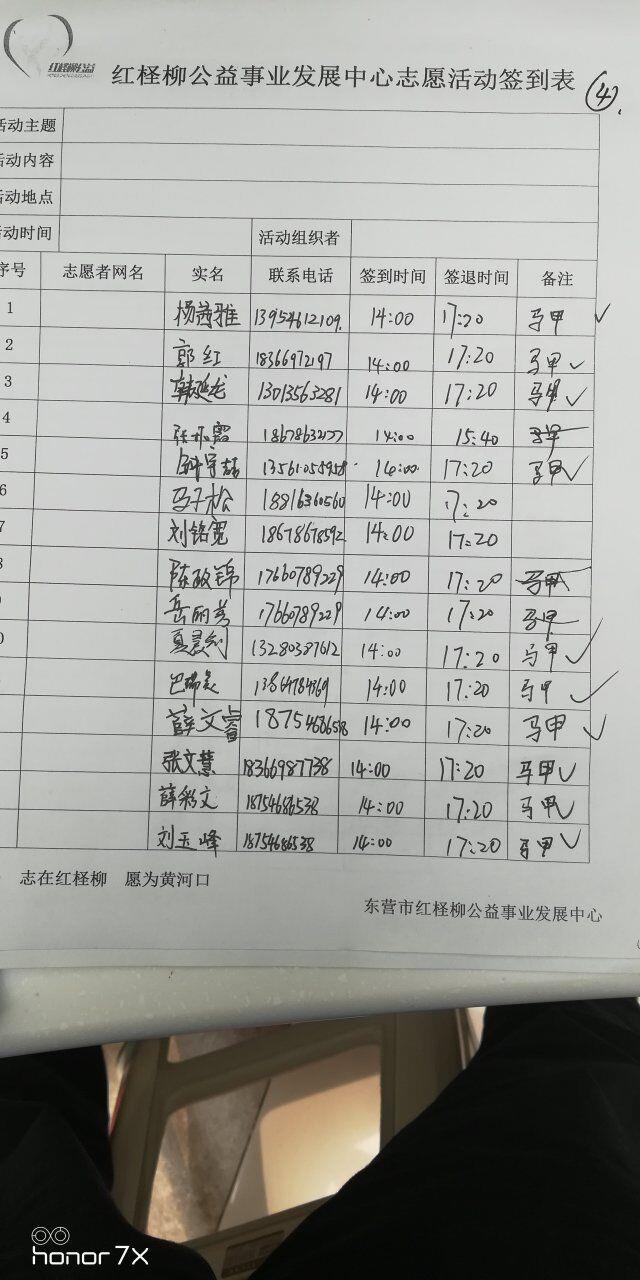 红柽柳公益
红柽柳公益事业发展中心志愿活动签到表 ④.
活动主题
活动内容
活动地点
活动时间 活动组织者
序号 志愿者网名 实名 联系电话 签到时间 签退时间 备注
1 13954612109. 14:00 17:20 马甲 ✓
2 郭红 18366972197 14:00 17:20 马甲 ✓
3 韩延龙 13013563281 14:00 17:20 马甲 ✓
4 14:00 15:40 马甲
5 14:00 17:20 马甲 ✓
6 马子松 18816360560 14:00 17:20
7 刘铭宽 18678678592 14:00 17:20
8 陈政锦 17660789229 14:00 17:20 马甲
岳丽芳 17660789229 14:00 17:20 马甲
0 13280387612 14:00 17:20 马甲 ✓
14:00 17:20 马甲 ✓
薛文睿 14:00 17:20 马甲 ✓
张文慧 18366987738 14:00 17:20 马甲 ✓
薛彩文 18754686538 14:00 17:20 马甲 ✓
刘玉峰 18754686538 14:00 17:20 马甲 ✓
志在红柽柳 愿为黄河口
东营市红柽柳公益事业发展中心
honor 7X